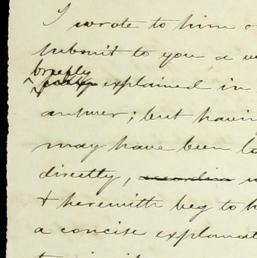 I wrote to him
submit to you a
briefly
explained in
answer; but havin
may have been
directly,
& herewith beg to
a concise explana